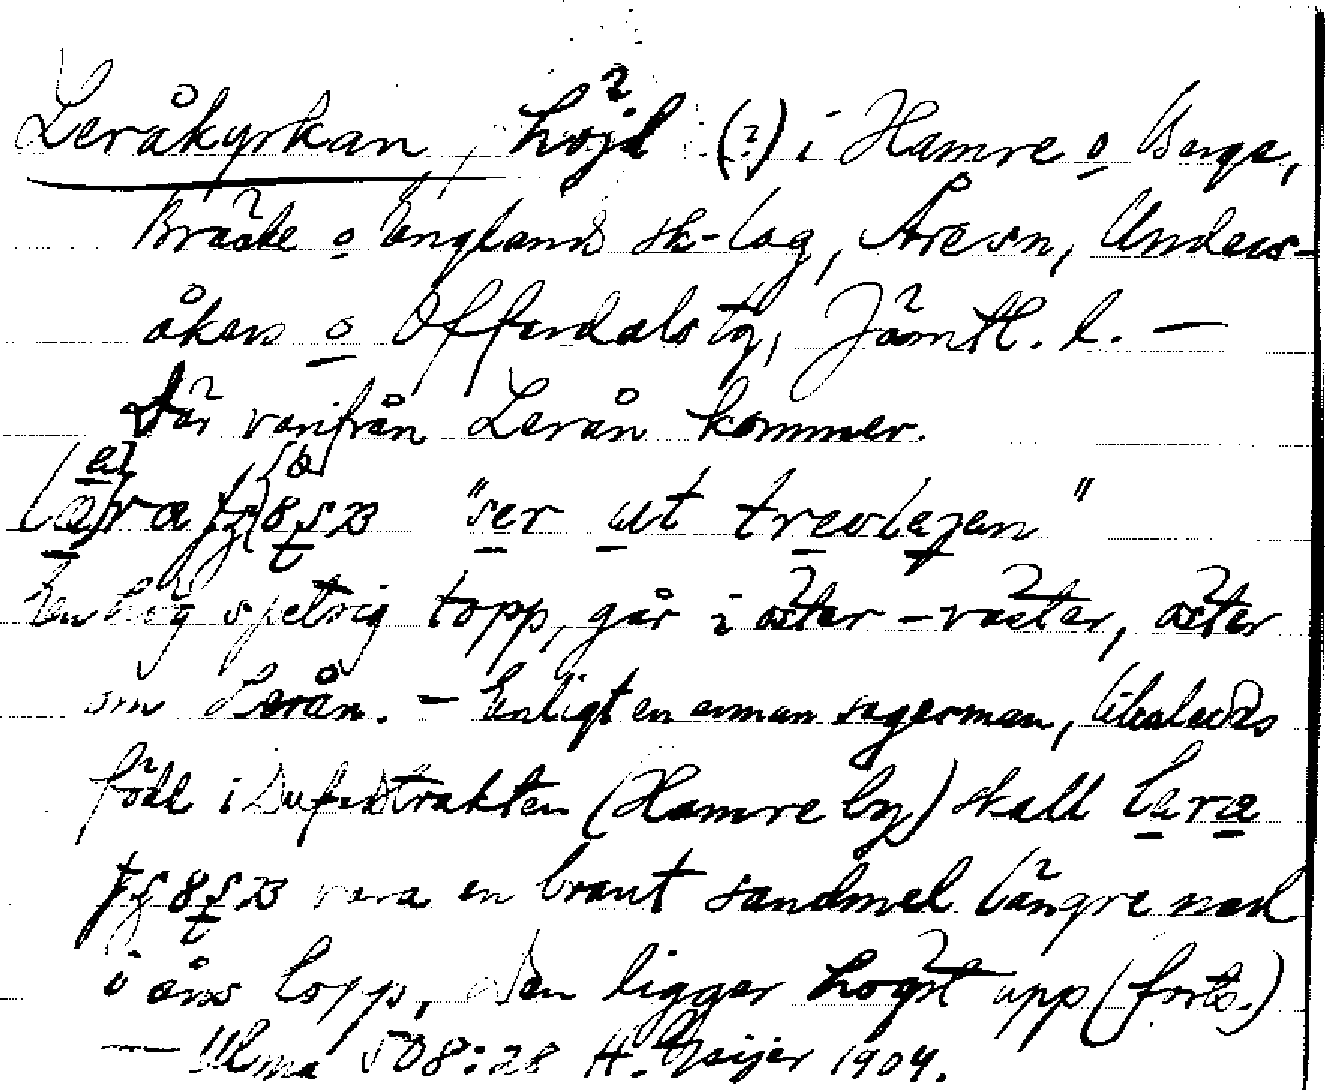 Leråkyrkan, höjd (?) i Hamre o Berge,
Bräcke o Englands sk-lag, Åresn, Unders-
åkers o Offerdals tg, Jämtl. l. —
Där varifrån Lerån kommer.
"ser ut trevlegen"
En hög spetsig topp, går i öster - väster, öster
om Lerån. - Enligt en annan sagesman, likaledes
född i Dufedtrakten (Hamre by) skall lera
vara en brant sandmel längre ned
i åns lopp, den ligger högst upp (forts.)
— Ulma 508:28 H. Geijer 1904.